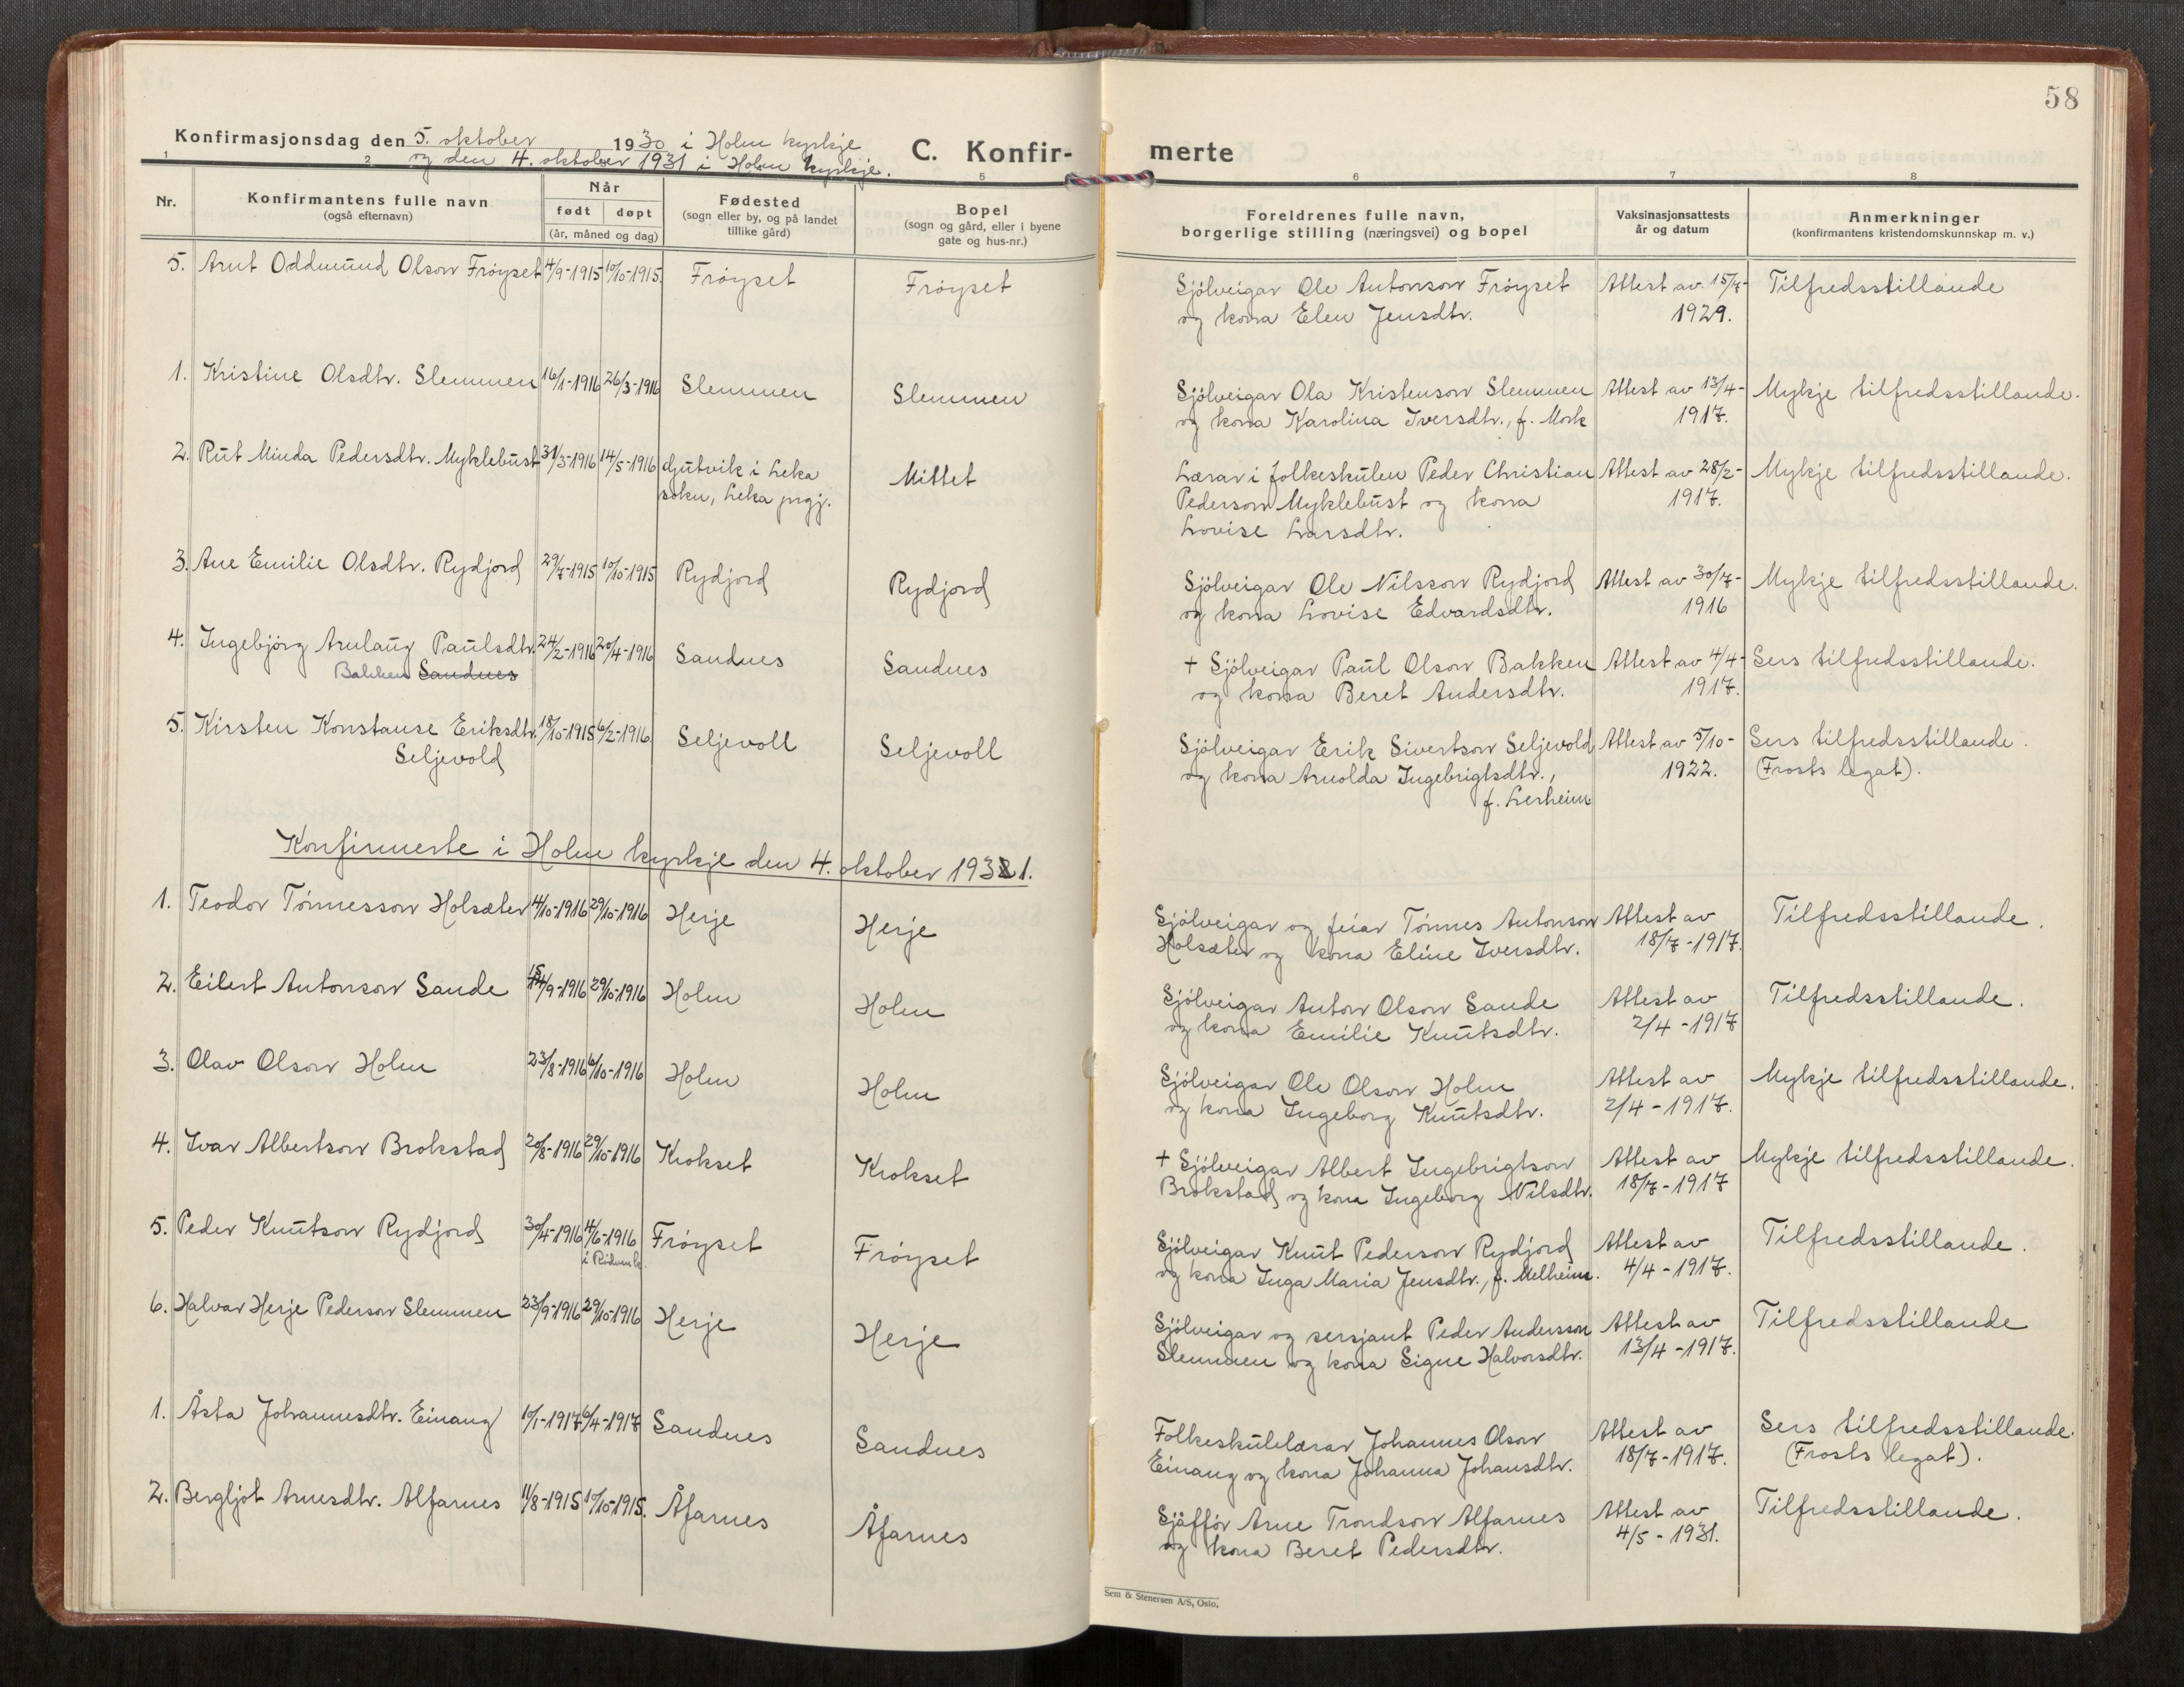 58
Konfirmasjonsdag den 5. oktober 1930 i Holm kyrkje
og den 4. oktober 1931 i Holm kyrkje.
C. Konfir-
merte
1 2 5 6 7 8
Nr.
Konfirmantens fulle navn
(også efternavn)
Når
født døpt
(år, måned og dag)
Fødested
(sogn eller by, og på landet
tillike gård)
Bopel
(sogn og gård, eller i byene
gate og hus-nr.)
Foreldrenes fulle navn,
borgerlige stilling (næringsvei) og bopel
Vaksinasjonsattests
år og datum
Anmerkninger
(konfirmantens kristendomskunnskap m. v.)
5. Arnt Oddmund Olson Fröyset 4/9-1915 10/10-1915. Fröyset Fröyset Sjölveigar Ole Antonson Fröyset Attest av 15/7- Tilfredsstillande
og kona Elen Jensdtr. 1929.
1. Kristine Olsdtr. Slemmen 16/1-1916 26/3-1916 Slemmen Slemmen Sjölveigar Ola Kristenson Slemmen Attest av 13/4- Mykje tilfredsstillande.
og kona Karolina Iversdtr., f. Mork 1917.
2. Rut Minda Pedersdtr. Myklebust 31/3-1916 14/5-1916 Gutvik i Leka Mittet Lærar i folkeskulen Peder Christian Attest av 28/2- Mykje tilfredsstillande.
sokn, Leka prgj. Pederson Myklebust og kona 1917.
Lovise Larsdtr.
3. Ane Emilie Olsdtr. Rydjord 29/7-1915 10/10-1915 Rydjord Rydjord Sjölveigar Ole Nilsson Rydjord Attest av 30/7- Mykje tilfredsstillande.
og kona Lovise Edvardsdtr. 1916
4. Ingebjörg Arnlaug Paulsdtr. 24/2-1916 20/4-1916 Sandnes Sandnes + Sjölveigar Paul Olson Bakken Attest av 4/4- Sers tilfredsstillande.
Bakken Sandnes og kona Beret Andersdtr. 1917.
5. Kirsten Konstanse Eriksdtr. 18/10-1915 6/2-1916 Seljevoll Seljevoll Sjölveigar Erik Sivertson Seljevold Attest av 5/10- Sers tilfredsstillande.
Seljevold og kona Arnolda Ingebrigtsdtr., 1922. (Frosts legat).
f. Lerheim
Konfirmerte i Holm kyrkje den 4. oktober 1931.
1. Teodor Tönnesson Holsæter 4/10-1916 29/10-1916 Herje Herje Sjölveigar og feiar Tönnes Antonson Attest av Tilfredsstillande.
Holsæter og kona Eline Iversdtr. 18/7-1917.
2. Eilert Antonson Sande 15/9-1916 29/10-1916 Holm Holm Sjölveigar Anton Olson Sande Attest av Tilfredsstillande.
og kona Emilie Knutsdtr. 2/4-1917
3. Olav Olson Holm 23/8-1916 6/10-1916 Holm Holm Sjölveigar Ole Olson Holm Attest av Mykje tilfredsstillande.
og kona Ingeborg Knutsdtr. 2/4-1917.
4. Ivar Albertson Brokstad 20/8-1916 29/10-1916 Krokset Krokset + Sjölveigar Albert Ingebrigtson Attest av Mykje tilfredsstillande.
Brokstad og kona Ingeborg Nilsdtr. 18/7-1917
5. Peder Knutson Rydjord 30/4-1916 4/6-1916 Fröyset Fröyset Sjölveigar Knut Pederson Rydjord Attest av Tilfredsstillande.
i Rödven k. og kona Inga Maria Jensdtr., f. Melheim. 4/4-1917.
6. Halvar Herje Pederson Slemmen 23/9-1916 29/10-1916 Herje Herje Sjölveigar og sersjant Peder Andersson Attest av Tilfredsstillande
Slemmen og kona Signe Halvorsdtr. 13/4-1917.
1. Åsta Johannesdtr. Einang 10/1-1917 6/4-1917 Sandnes Sandnes Folkeskulelærar Johannes Olson Attest av Sers tilfredsstillande.
Einang og kona Johanna Johansdtr. 18/7-1917. (Frosts legat).
2. Bergljot Arnesdtr. Alfarnes 11/8-1915 10/10-1915. Åfarnes Åfarnes Sjåfför Arne Trondson Alfarnes Attest av Tilfredsstillande.
og kona Beret Pedersdtr. 4/5-1931.
Sem & Stenersen A/S, Oslo.